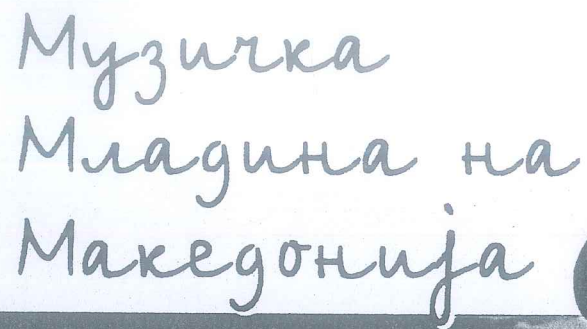 Музичка
Младина на
Македонија